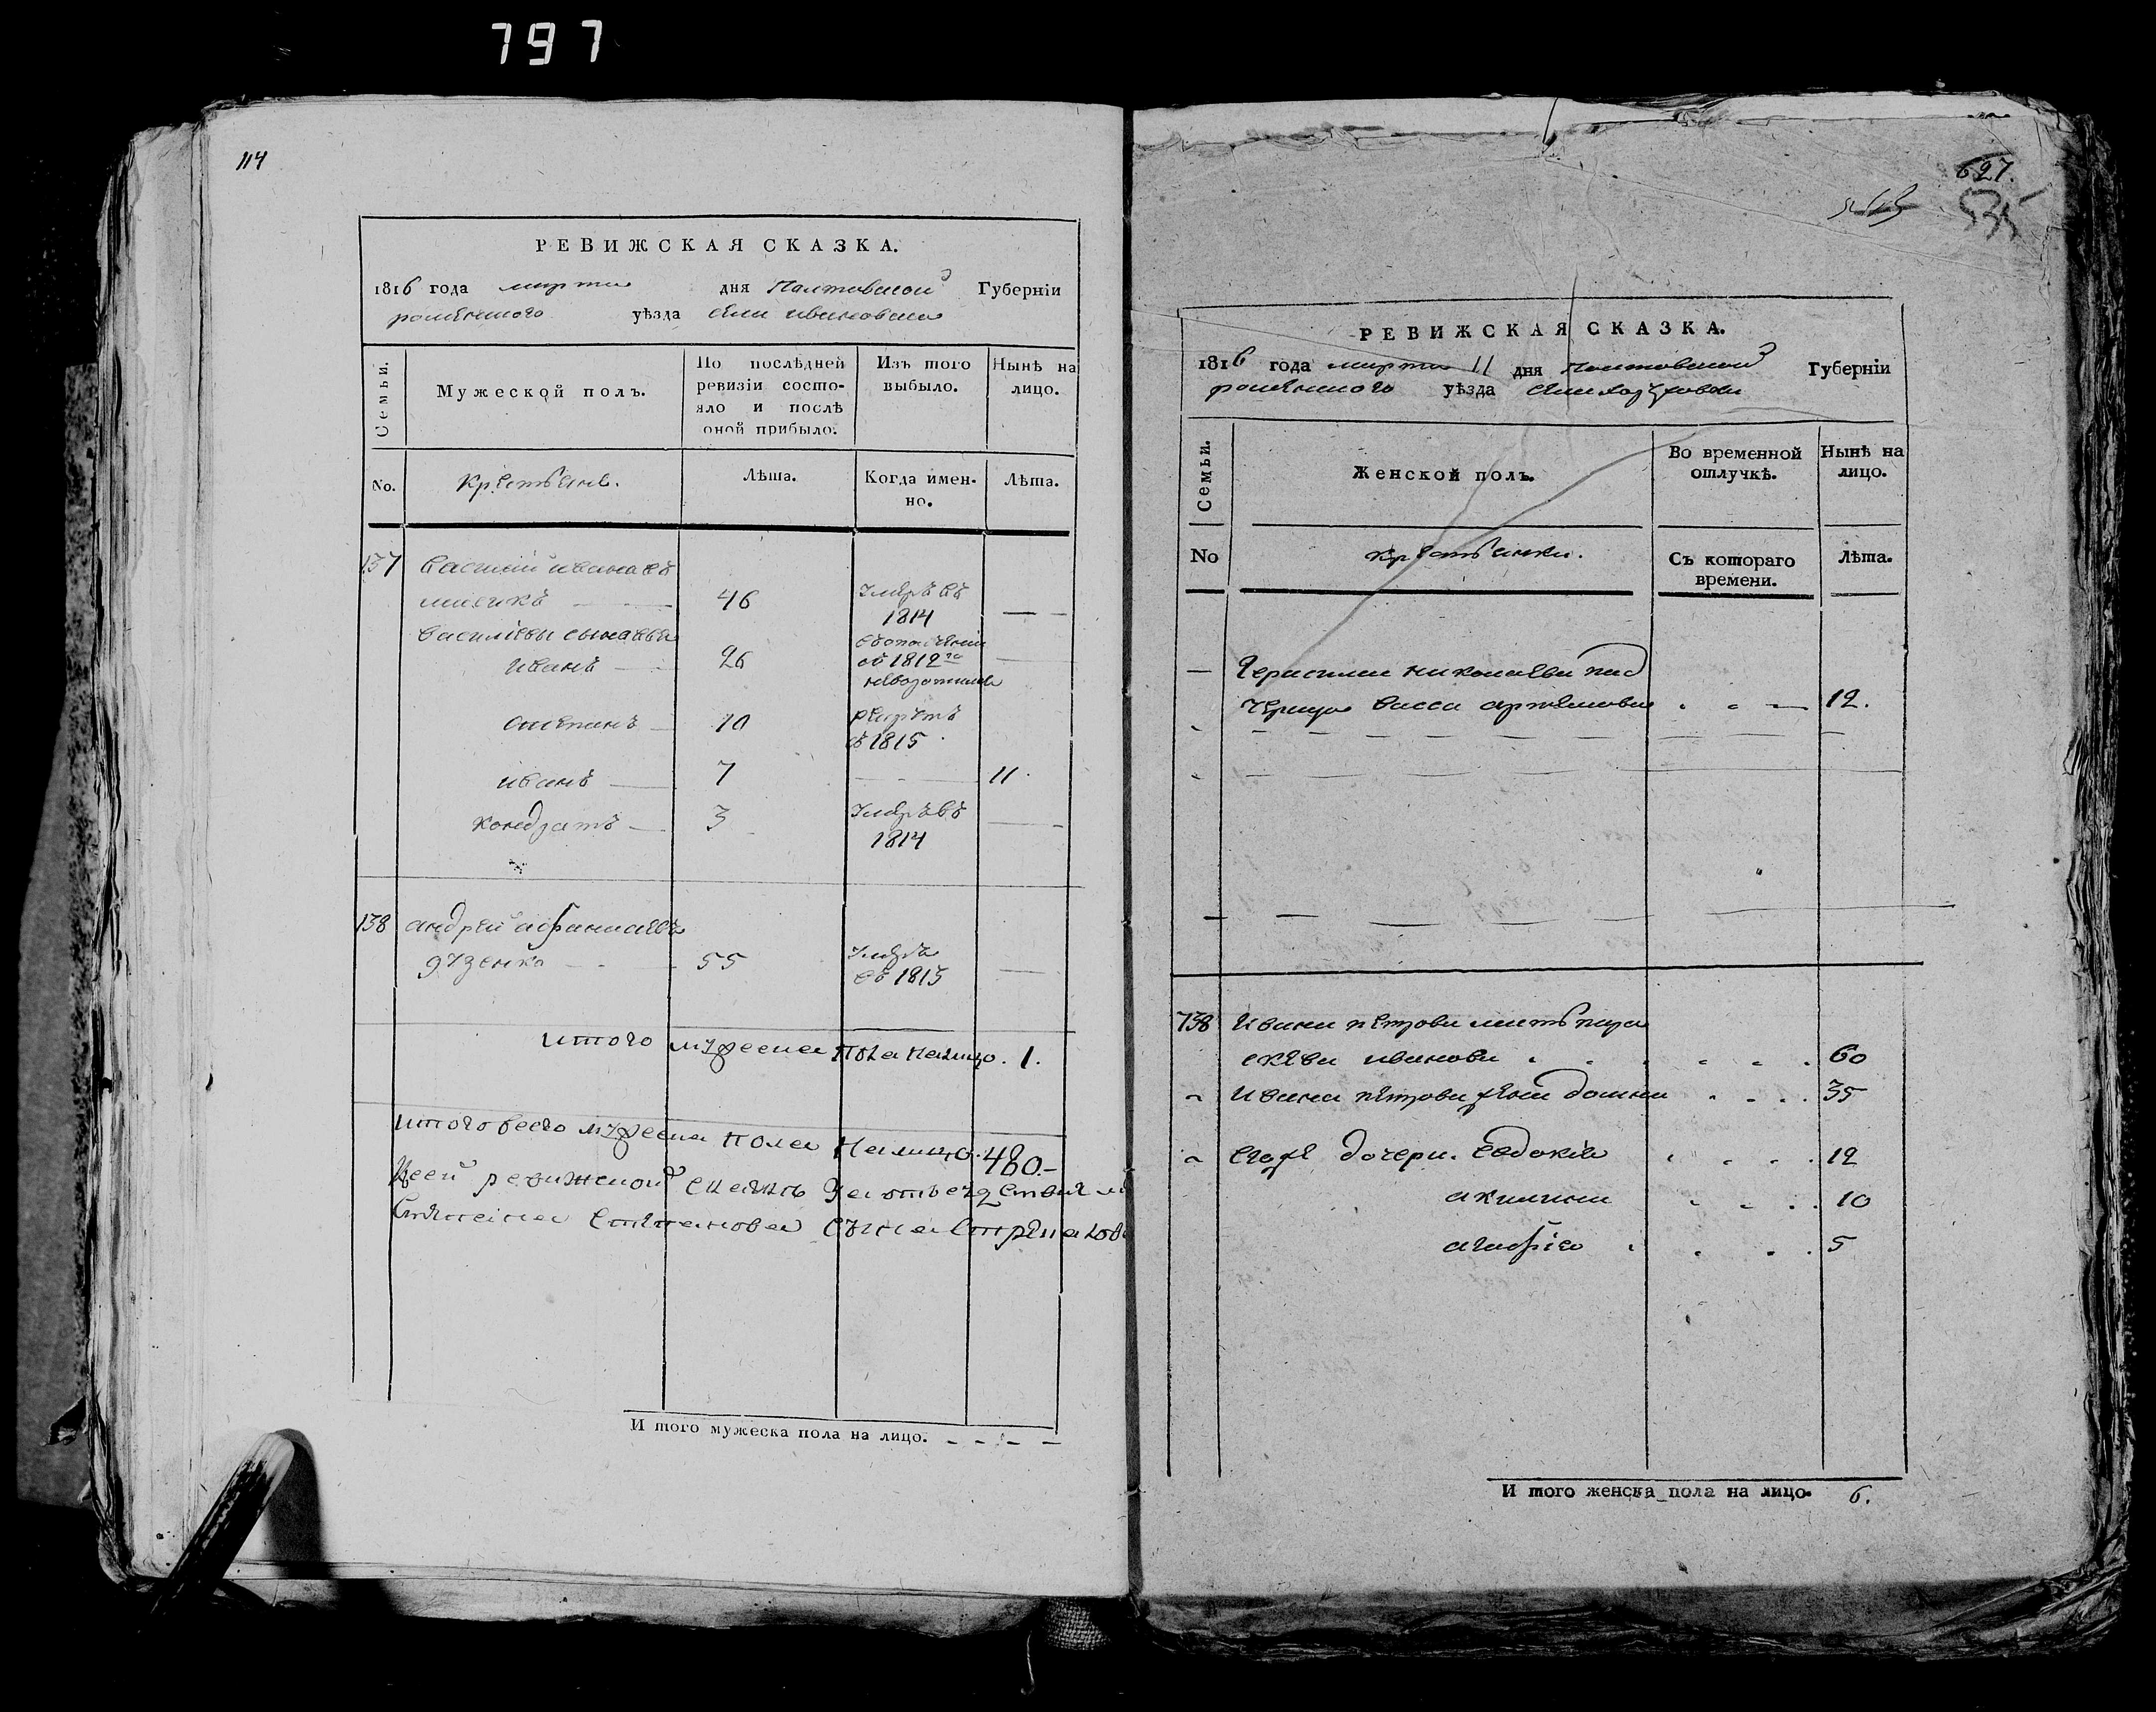 797
114
РЕВИЖСКАЯ СКАЗКА.
1816 года марта дня Полтавской Губерніи
роменского уѣзда села ивановки
Семьи.
Мужеской полъ.
По послѣдней ревизіи состояло и послѣ оной прибыло.
Изъ того выбыло.
Нынѣ на лицо.
No.
крестьяне.
Лѣта.
Когда именно.
Лѣта.
137 василий ивановъ
46 умеръ въ 1814
василіевы сыновья
иванъ 26 въ 1812 го
степанъ 10 рекрутъ въ 1815
иванъ 7 11.
кондратъ 3 умеръ въ 1814
138 андрей афанасіевъ
дзенко 55 умеръ въ 1815
итого мужеска пола налицо. 1.
итого всего мужеска пола налицо. 480.
степана степанова сына
И того мужеска пола на лицо.
627.
535
РЕВИЖСКАЯ СКАЗКА.
1816 года марта 11 дня Полтавской Губерніи
роменского уѣзда села
Семьи.
Женской полъ.
Во временной отлучкѣ.
Нынѣ на лицо.
No
крестьянки.
Съ котораго времени.
Лѣта.
Герасима николаева пад
черица васса артемова 12.
738 Ивана петрова мать пара
скева иванова 60
Ивана петрова жена домна 35
Его же дочери. Евдокія 12
акилина 10
агафія 5
И того женска пола на лицо. 6.